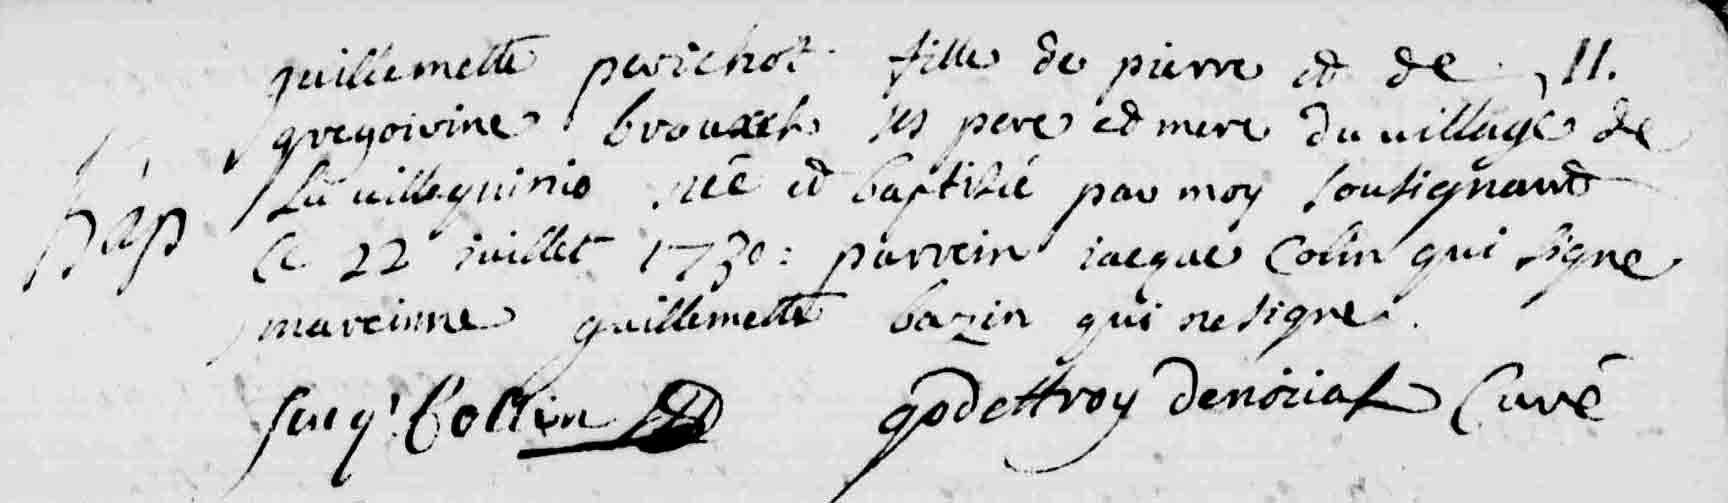 guillemette perichot fille de pierre et de
11.
gregoirine brouxel ses pere et mere du village de
bap
la villeguinio née et baptisé par moy sousignant
ce 22 juillet 1730: parrein jacque Colin qui signe
mareinne guillemette bazin qui ne signe.
Jacq. Collin
godeffroy Curé